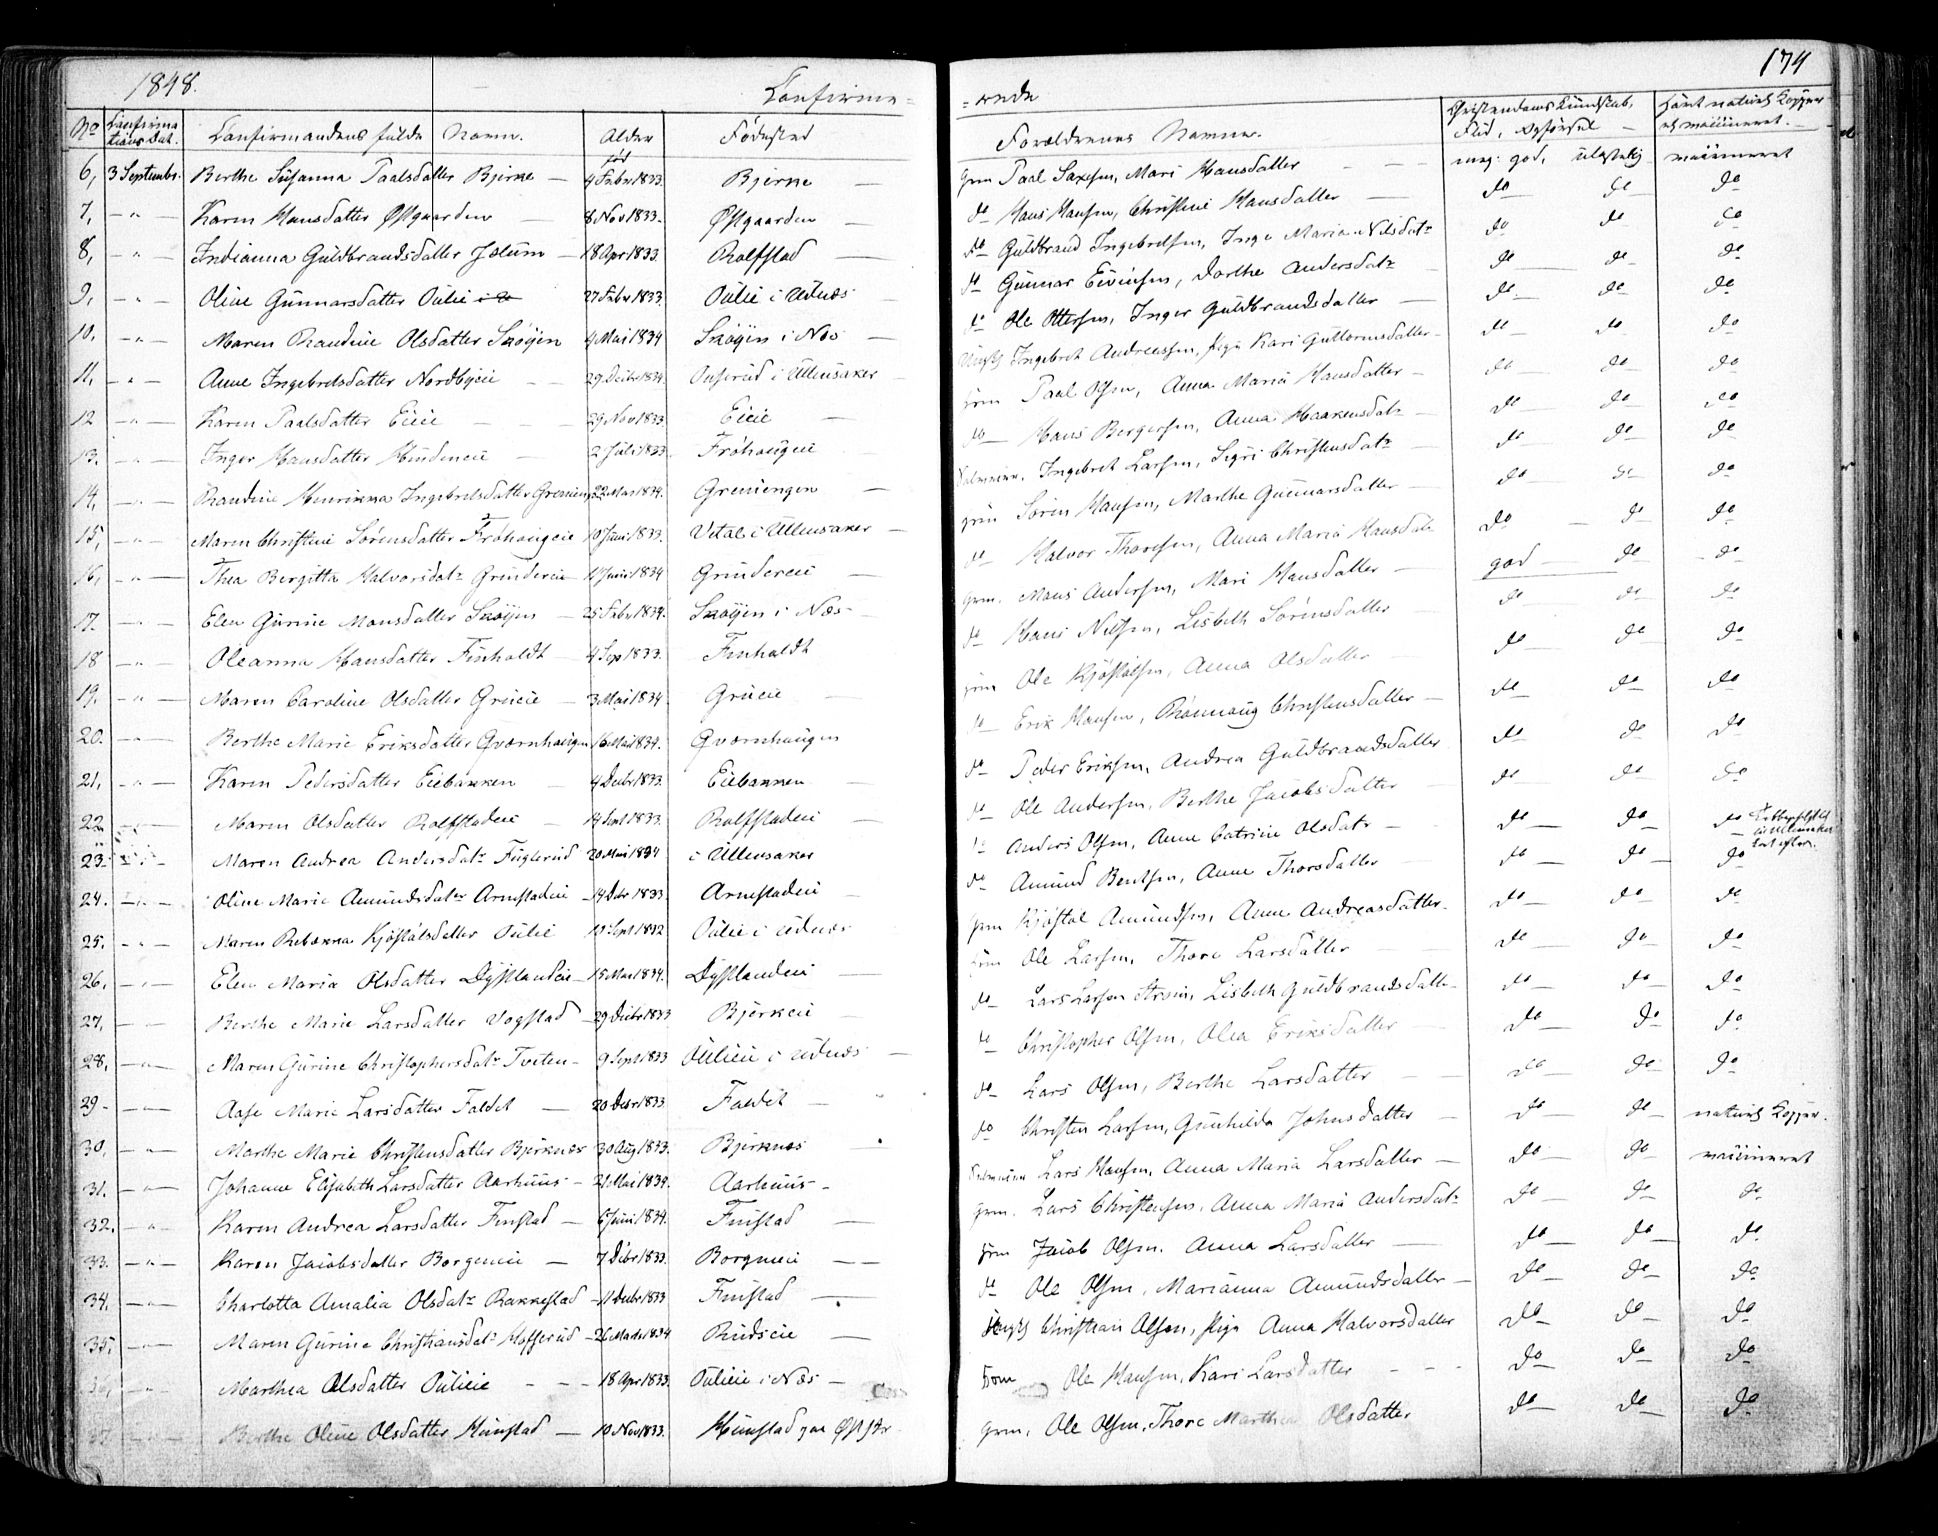 1848. Confirme= =rede 174
No Confirmations Dat. Confirmandens fulde Navn. Alder Fødested Forældrenes Navne. Christendoms Kundskab, Flid, Opførsel Havt naturl. Kopper el. vaccineret.
6, 3 Septembr. Berthe Susanna Paalsdatter Bjerke — født 4 Febr 1833. Bjerke — grm Paal Saxesen, Mari Hansdatter — meg. god, ulastelig vaccineret
7, — " — Karen Hansdatter Østgaarden — 8. Nov 1833. Østgaarden — do Hans Hansen, Christine Hansdatter — do do do
8, — " — Indianna Guldbrandsdatter Jælum — 18 Apr 1833. Rolfstad — do Guldbrand Ingebretsen, Inge Maria Nilsdatr do do do
9, — " — Oline Gunnarsdatter Oulie 27 Febr 1833. Oulie i Udnæs do Gunnar Eivindsen, Dorthe Andersdatr do do do
10, — " — Maren Randine Olsdatter Skøyen 4 Mai 1834 Skøyen i Næs — do Ole Ottersen, Inger Guldbrandsdatter — do do do
11, — " — Anne Ingebretsdatter Nordbyeie — 29 Decbr 1834. i Ullensaker Ungkl Ingebret Andreassen, Pige Kari Guttormsdatter — do do do
12 — " — Karen Paalsdatter Eieie — 29 Nov 1833. Eieie — grm Paal Olsen, Anna Maria Hansdatter — do do do
13. — " — Inger Hansdatter — 2 Juli 1833 Frøhougeie do Hans Bergersen, Anna Haakensdatr do do do
14, — " — Randine Henrikka Ingebretsdatter Greniengen 22 Mar 1834. Greniengen — Ingebret Larsen, Sigri Christensdatr do do do
15, — " — Maren Christine Sørensdatter Frøhougeie 10 Juni 1833. Vetal i Ullensaker — grm Søren Hansen, Marthe Gunnarsdatter — do do do
16, — " — Thea Bergitta Halvorsdatr Grindereie 11 Juni 1834 Grindereie — do Halvor Thoresen, Anna Maria Hansdatr do do do
17 — " — Elen Gurine Monsdatter Skøyen — 25 Febr 1834. Skøyen i Næs — grm. Mons Andersen, Mari Hansdatter — god do do
18 — " — Oleanna Hansdatter Finholdt — 4 Sep 1833. Finholdt do Hans Nilsen, Lisbeth Sørensdatter do do do
19, — " — Maren Caroline Olsdatter Grueie — 3 Mai 1834. Grueie — grm Ole Kjøstolsen, Anna Olsdatter — do do do
20. — " — Berthe Marie Eriksdatter Qværnhaugen 16 Mai 1834. Qværnhaugen do Erik Hansen, Rønnaug Christensdatter — do do do
21, — " — Karen Pedersdatter Eiebakken — 4 Decbr 1833. Eiebakken — do Peder Eriksen, Andrea Guldbrandsdatter do do do
22 — " — Maren Olsdatter Rolfstadeie — 14 Sept 1833. Rolfstadeie — do Ole Andersen, Berthe Jacobsdatter — do do do
23. — " — Maren Andrea Andersdatr Fuglerud 20 Mai 1834 i Ullensaker do Anders Olsen, Anne Catrine Olsdatr — do do do
24. — " — Oline Marie Amundsdatr Arnestadeie — 14 Debr 1833 Arnestadeie — do Amund Bentsen, Anne Thorsdatter — do do do
25. — " — Maren Rebækka Kjøstolsdatter Oulie 12 Sept 1832 Oulie i Udnæs grm Kjøstol Amundsen, Anne Andreasdatter. do do do
26, — " — Elen Maria Olsdatter Dystlandeie — 15 Mar 1834. Dystlandeie — grm Ole Larsen, Thore Larsdatter — do do do
27, — " — Berthe Marie Larsdatter Vogstad — 29 Decbr 1833 Bjerkeie — do Lars Larsen, Lisbeth Guldbrandsdatter do do do
28, — " — Maren Gurine Christophersdatr Tveten — 9 Sept 1833 Oulieie i Udnæs — do Christopher Olsen, Olea Eriksdatter — do do do
29 — " — Aase Marie Larsdatter Faldet — 20 Debr 1833 Faldet — do Lars Olsen, Berthe Larsdatter — do do do
30, — " — Marthe Marie Christensdatter Bjerknæs 30 Aug 1833. Bjerknæs — do Christen Larsen, Gunhilda Johnsdatter — do do naturl. Kopper.
31. — " — Johanne Elisabeth Larsdatter Aarhuus — 21 Mai 1834. Aarhuus — Lars Hansen, Anna Maria Larsdatter — do do vaccineret
32. — " — Karen Andrea Larsdatter Finstad — 6 Juni 1834. Finstad — grm. Lars Christensen, Anna Maria Andersdatr do do do
33. — " — Karen Jacobsdatter Borgeneie — 7 Debr 1833. Borgeneie — grm Jacob Olsen, Anna Larsdatter — do do do
34. — " — Charlotta Amalia Olsdatr Rakkestad — 11 Decbr 1833 Finstad — do Ole Olsen, Marianna Amundsdatter — do do do
35, — " — Maren Gurine Christiansdatr Hofserud — 26 Marts 1834 Rudseie — Ungkl Christian Olsen, Pige Anna Halvorsdatter do do do
36, — " — Marthea Olsdatter Oulieie — 18 Apr 1833. Oulieie i Næs — grm Ole Hansen, Kari Larsdatter — do do do
37 — " — Berthe Oline Olsdatter Hunstad — 10 Nov 1833. Hunstad paa grm. Ole Olsen, Thore Marthea Olsdatter do do do